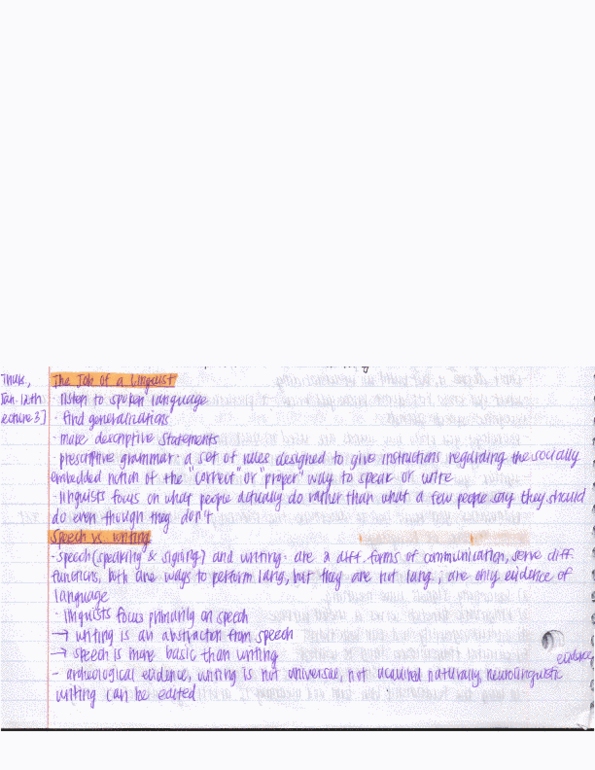 Thurs,
Jan. 12th
Lecture 3]
The Job of a Linguist
· listen to spoken language
· find generalizations
· make descriptive statements
· prescriptive grammar: a set of rules designed to give instructions regarding the socially
embedded notion of the "correct" or "proper" way to speak or write
· linguists focus on what people actually do rather than what a few people say they should
do even though they don't
Speech vs. writing
· speech (speaking & signing) and writing: are 2 diff. forms of communication, serve diff.
functions, both are ways to perform lang, but they are not lang; are only evidence of
language
· linguists focus primarily on speech
→ writing is an abstraction from speech
→ speech is more basic than writing
- archeological evidence, writing is not universal, not acquired naturally, neurolinguistic evidence,
writing can be edited